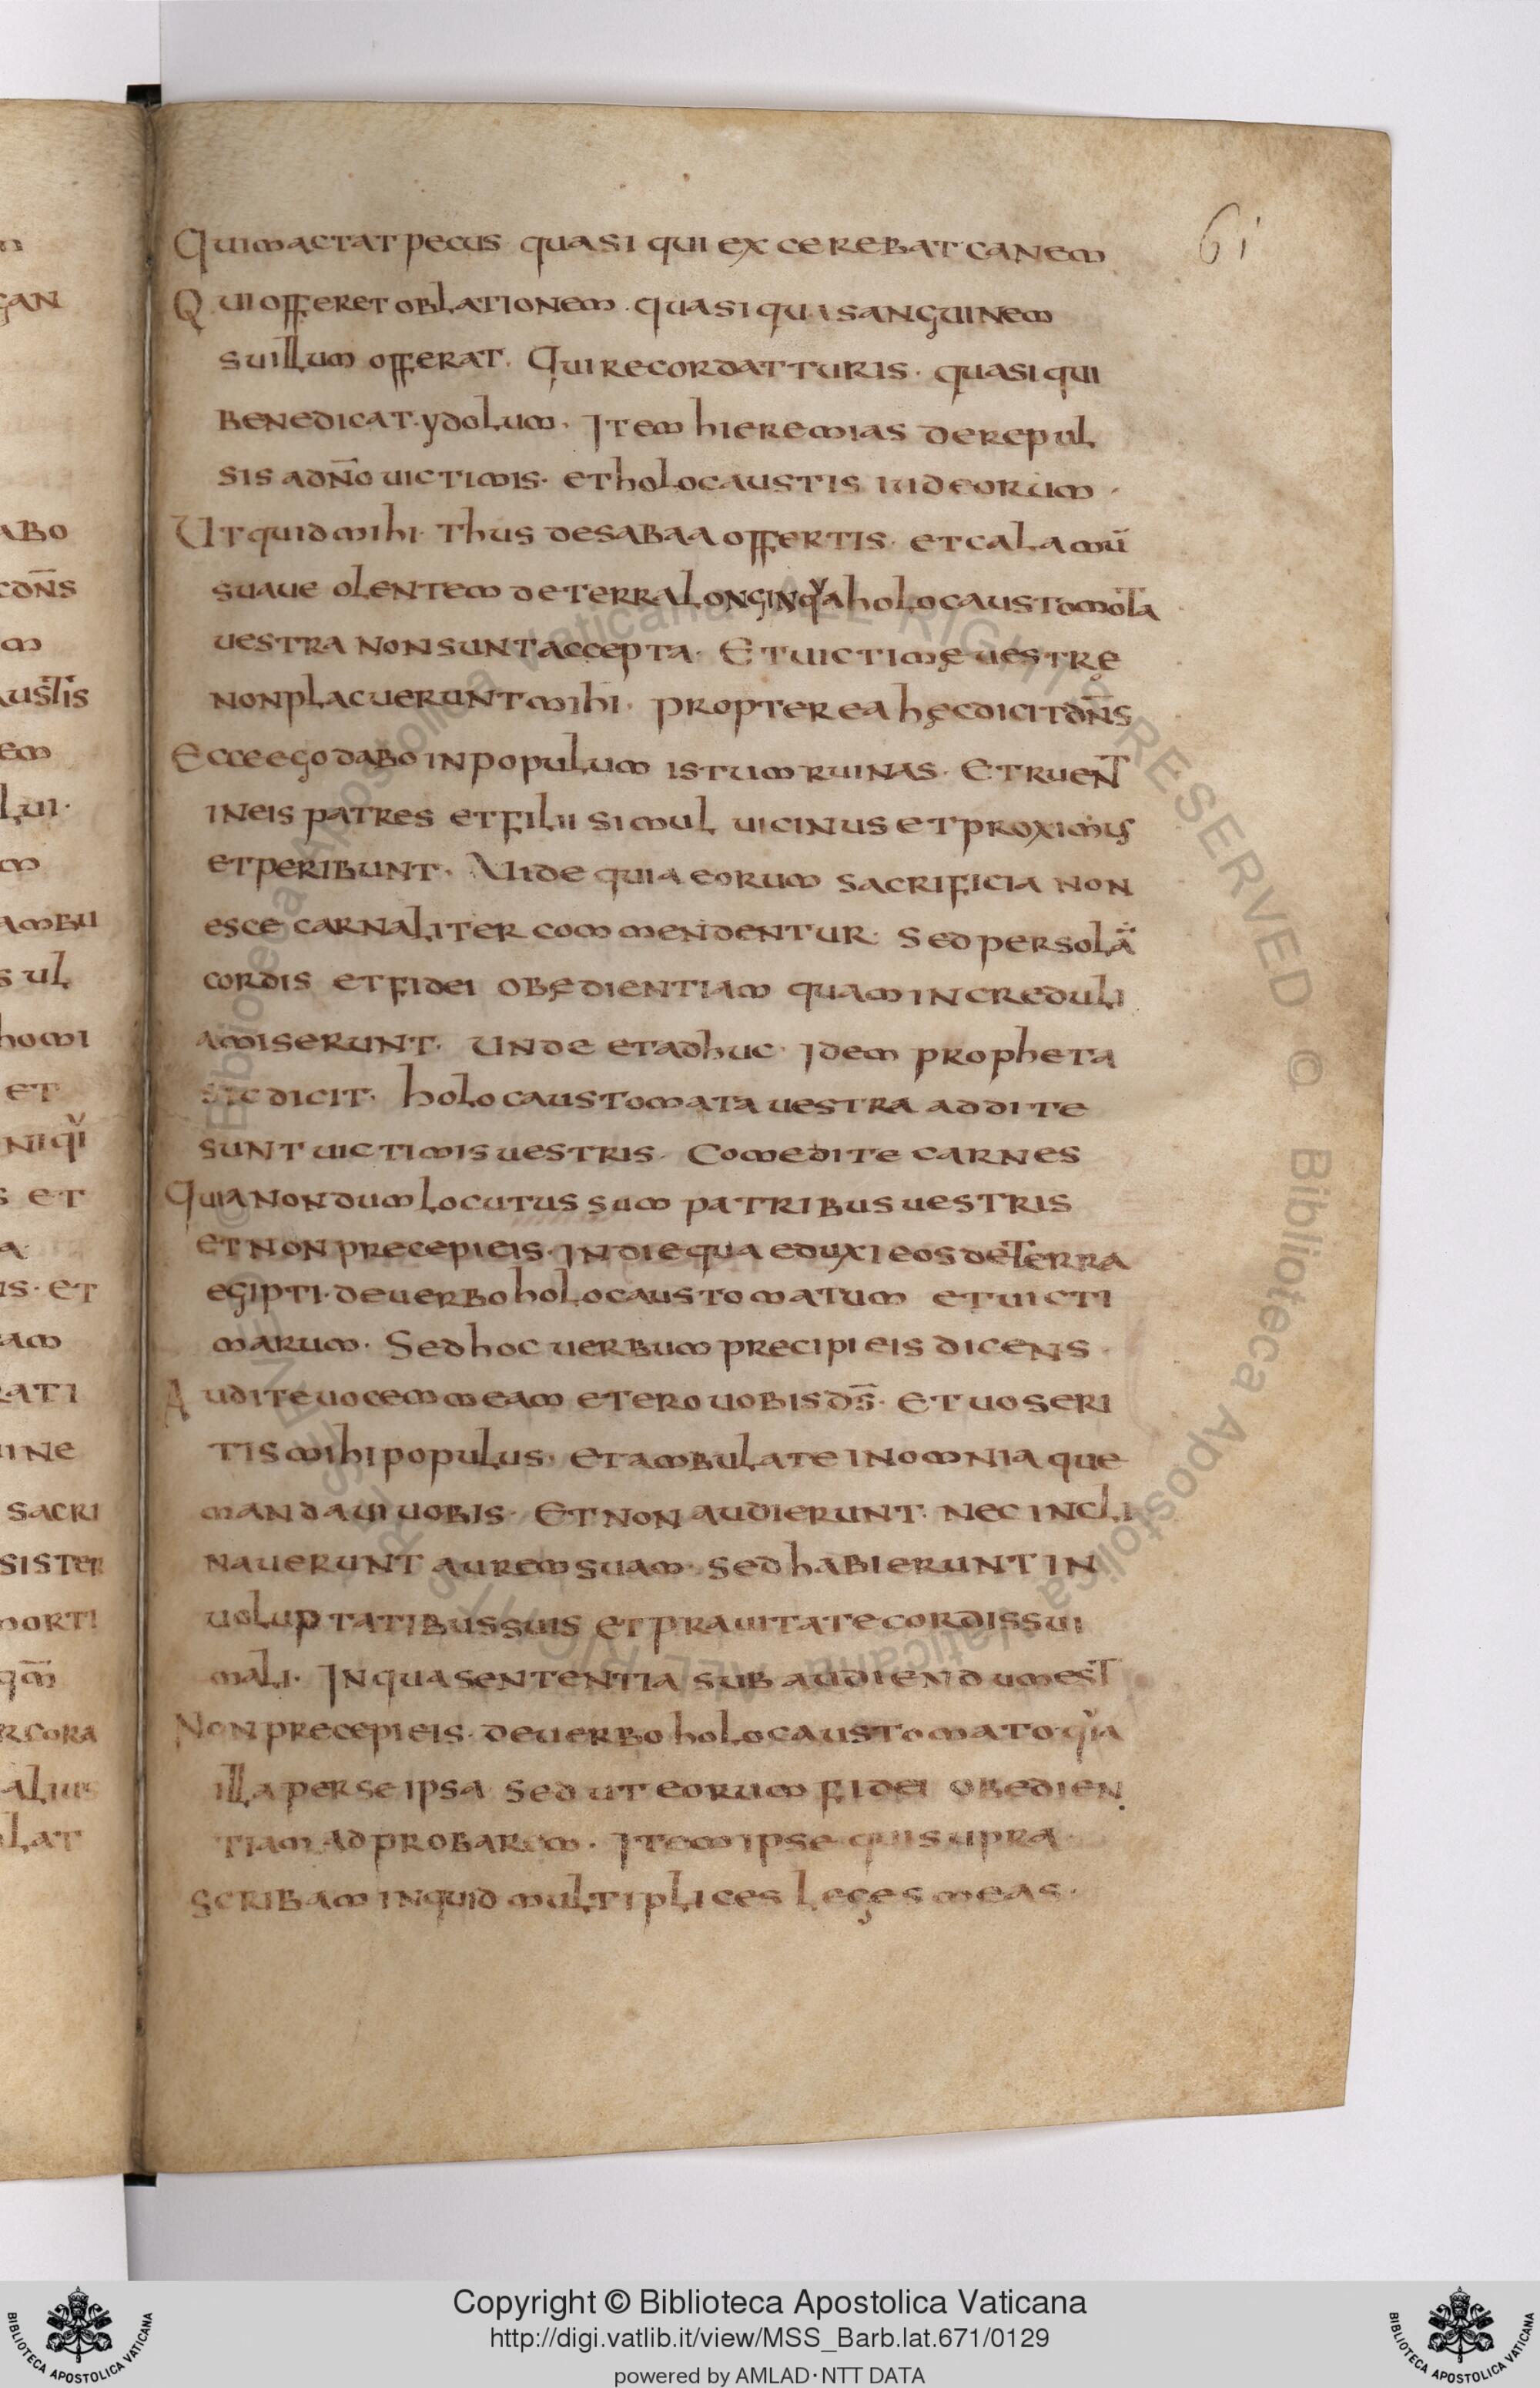 61
Quimactat pecus quasi qui excerebat canem
Qui offeret oblationem · quasi qui sanguinem
suillum offerat · Qui recordat turis · quasi qui
benedicat · ydolum · Item hieremias de repul
sis adn̄o uictimis · et holocaustis iudeorum ·
Ut quid mihi · thus desabaa offertis · et calamū
suaue olentem de terra longinqua holocaustomota
uestra non sunt accepta · Et uictimę uestrę
non placuerunt mihi · propterea hęc dicit dn̄s
Ecce ego dabo in populum istum ruinas · Et ruent
in eis patres et filii simul uicinus et proximus
et peribunt · Uide quia eorum sacrificia non
esce carnaliter commendentur · Sed per solā
cordis et fidei obędientiam quam increduli
amiserunt · Unde et adhuc · Idem propheta
sic dicit · holocaustomata uestra addite
sunt uictimis uestris · Comedite carnes
Quia non dum locutus sum patribus uestris
et non precepi eis · In die qua eduxi eos de terra
egipti · de uerbo holocaustomatum et uicti
marum · Sed hoc uerbum precipi eis dicens ·
Audite uocem meam et ero uobis d̄s · Et uos eri
tis mihi populus · et ambulate in omnia que
mandaui uobis · Et non audierunt · nec incli
nauerunt aurem suam · sed habierunt in
uoluptatibus suis et prauitate cordis sui
mali · In qua sententia subaudiendum est
Non precepi eis · de uerbo holocaustomato qia
illa per se ipsa sed ut eorum fidei obedien
tiam adprobarem · Item ipse qui supra ·
Scribam inquid multiplices leges meas ·
Copyright © Biblioteca Apostolica Vaticana
http://digi.vatlib.it/view/MSS_Barb.lat.671/0129
powered by AMLAD·NTT DATA